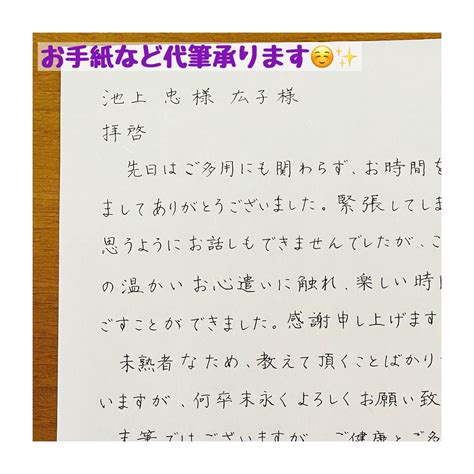 お手紙など代筆承ります☺️✨
池上 忠様 広子様
拝啓
先日はご多用にも関わらず、お時間を
ましてありがとうございました。緊張してしま
思うようにお話しもできませんでしたが、こ
の温かいお心遣いに触れ、楽しい時
ごすことができました。感謝申し上げます
未熟者なため、教えて頂くことばかり
いますが、何卒末永くよろしくお願い致
末筆ではございますが、ご健康とご多